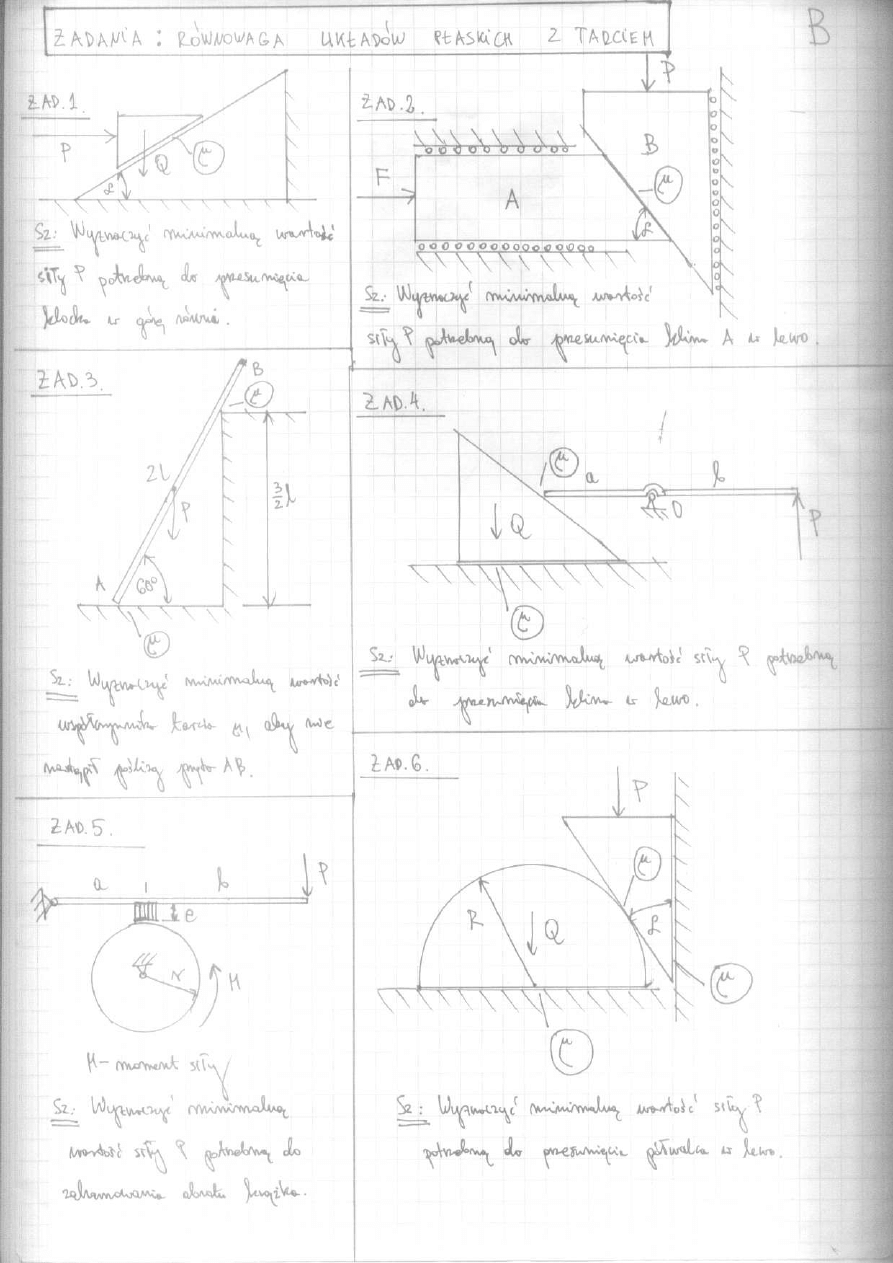 ZADANIA : RÓWNOWAGA UKŁADÓW PŁASKICH Z TARCIEM
B
ZAD.1.
P
Q
μ
α
Sz: Wyznaczyć minimalną wartość
siły P potrzebną do przesunięcia
klocka w górę równi.
ZAD.2.
P
B
F
A
μ
α
Sz: Wyznaczyć minimalną wartość
siły P potrzebną do przesunięcia klina A w lewo.
ZAD.3.
B
μ
2l
P
3/2 l
A
60°
μ
Sz: Wyznaczyć minimalną wartość
współczynnika tarcia μ, aby nie
nastąpił poślizg pręta AB.
ZAD.4.
μ
a
b
Q
O
P
μ
Sz: Wyznaczyć minimalną wartość siły P potrzebną
do przesunięcia klina w lewo.
ZAD.5.
a
b
P
e
r
M
M – moment siły
Sz: Wyznaczyć minimalną
wartość siły P potrzebną do
zahamowania obrotu krążka.
ZAD.6.
P
μ
R
Q
α
μ
μ
Sz: Wyznaczyć minimalną wartość siły P
potrzebną do przesunięcia półwalca w lewo.